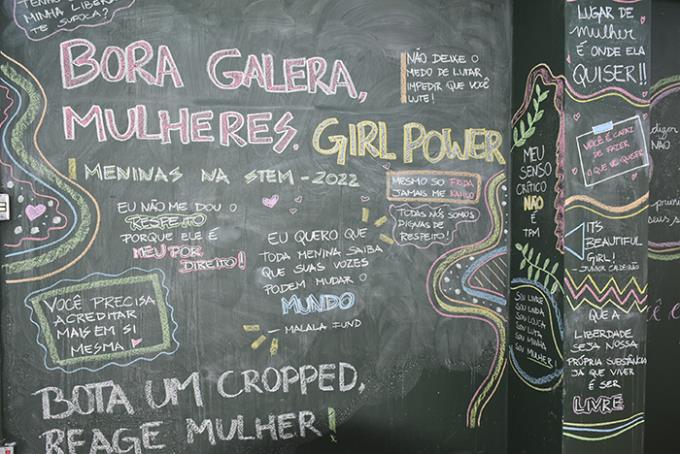 MINHA LIBER
TE SUFOCA?
BORA GALERA,
MULHERES.
GIRL POWER
MENINAS NA STEM - 2022
NÃO DEIXE O
MEDO DE LUTAR
IMPEDIR QUE VOCÊ
LUTE!
EU NÃO ME DOU O
RESPEITO
PORQUE ELE É
MEU POR
DIREITO!
EU QUERO QUE
TODA MENINA SAIBA
QUE SUAS VOZES
PODEM MUDAR O
MUNDO
- MALALA FUND
MESMO SO
JAMAIS ME
TODAS NÓS SOMOS
DIGNAS DE
RESPEITO!
VOCÊ PRECISA
ACREDITAR
MAIS EM SI
MESMA
BOTA UM CROPPED,
REAGE MULHER!
MEU
SENSO
CRÍTICO
NÃO
É
TPM
SOU LIVRE
SOU LINDA
SOU LOUCA
SOU LUTA
SOU MINHA
SOU MULHER!
LUGAR DE
mulher
É ONDE ELA
QUISER!!
VOCÊ É CAPAZ
DE FAZER
O QUE VC QUISER
ITS
BEAUTIFUL
GIRL!
JUNIOR CALDEIRÃO
QUE A
LIBERDADE
SEJA NOSSA
PRÓPRIA SUBSTÂNCIA
JÁ QUE VIVER
É SER
LIVRE
NÃO